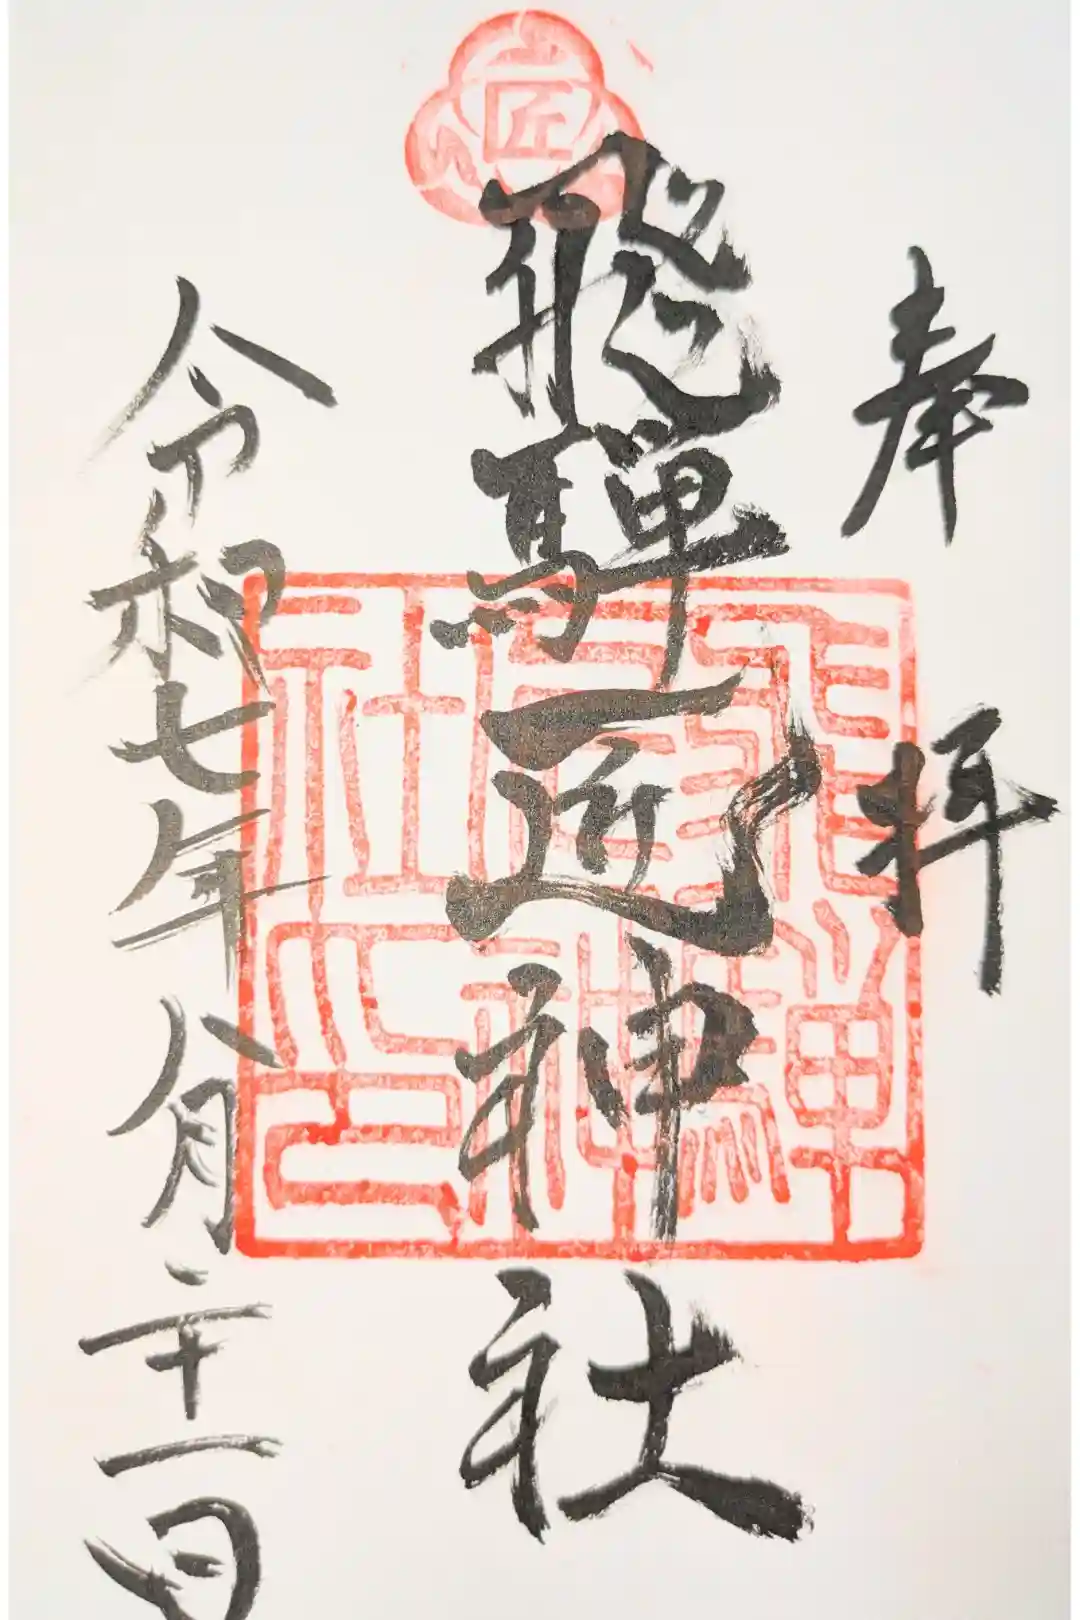 匠
奉拝
飛騨匠神社
飛騨匠神社之印
令和七年八月二十一日